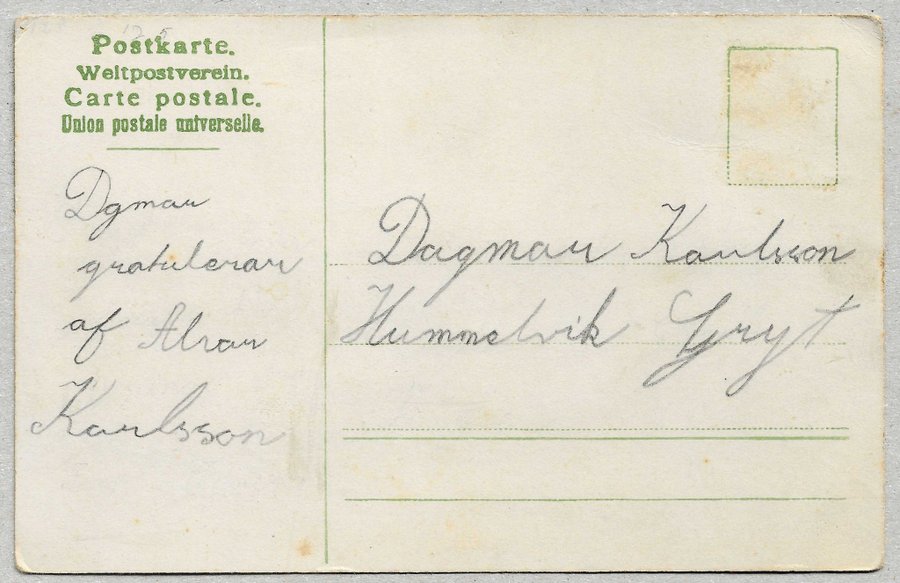 Postkarte.
Weltpostverein.
Carte postale.
Union postale universelle.
Dgmar
gratulerar
af Alvar
Karlsson
Dagmar Karlsson
Hummelvik Gryt